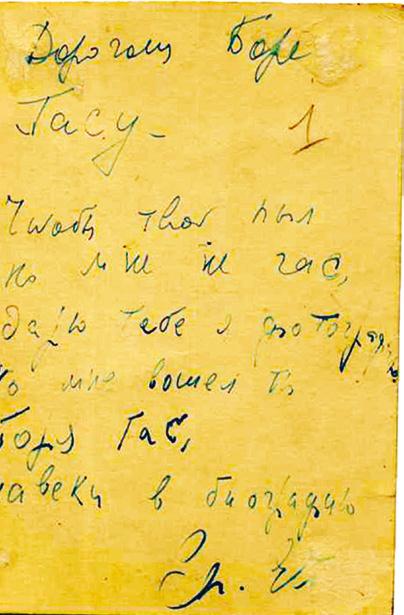 Дорогому Боре
Гасу –
1
Чтобы твой пыл
ко мне не гас,
дарю тебе я фотографию
Ко мне вошел ты
Боря Гас,
навеки в биографию